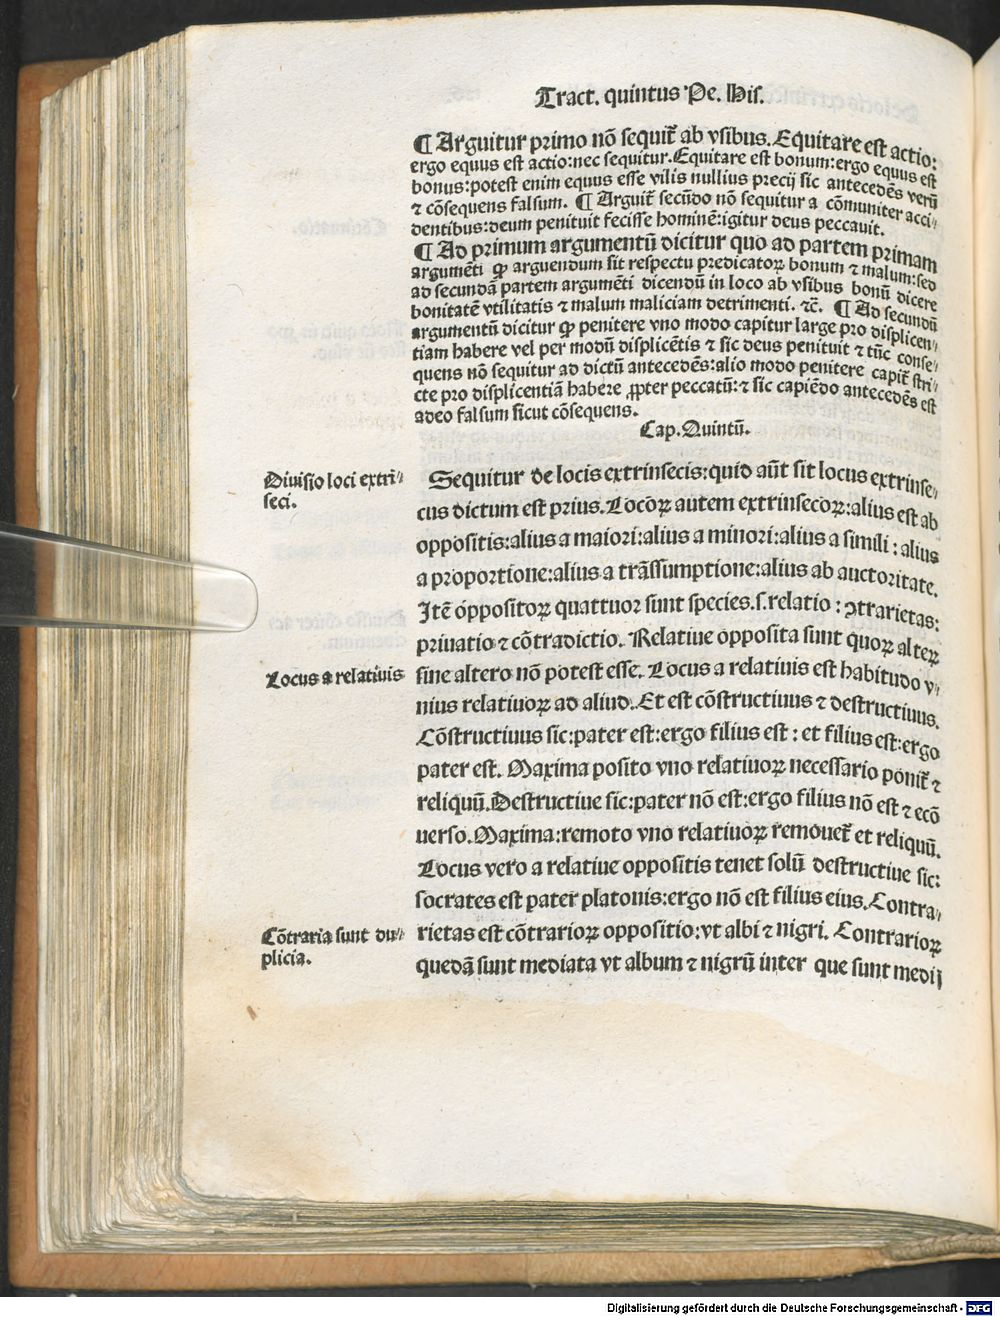 Tract. quintus Pe. His.
¶ Arguitur primo nō sequit̄ ab vsibus. Equitare est actio:
ergo equus est actio: nec sequitur. Equitare est bonum: ergo equus est
bonus: potest enim equus esse vilis nullius precij sic antecedēs verū
⁊ cōsequens falsum. ¶ Arguit̄ secūdo nō sequitur a cōmuniter acci⸗
dentibus: deum penituit fecisse hominē: igitur deus peccauit.
¶ Ad primum argumentū dicitur quo ad partem primam
argumēti ꝙ arguendum sit respectu predicatoꝝ bonum ⁊ malum: sed
ad secundā partem argumēti dicendū in loco ab vsibus bonū dicere
bonitatē vtilitatis ⁊ malum maliciam detrimenti. ⁊c̄. ¶ Ad secundū
argumentū dicitur ꝙ penitere vno modo capitur large pro displicen⸗
tiam habere vel per modū displicētis ⁊ sic deus penituit ⁊ tūc conse⸗
quens nō sequitur ad dictū antecedēs: alio modo penitere capit̄ stri⸗
cte pro displicentiā habere ꝓpter peccatū: ⁊ sic capiēdo antecedēs est
adeo falsum sicut cōsequens.
Cap. Quintū.
Diuisio loci extrī⸗
seci.
Sequitur de locis extrinsecis: quid aūt sit locus extrinse⸗
cus dictum est prius. Locoꝝ autem extrinsecoꝝ: alius est ab
oppositis: alius a maiori: alius a minori: alius a simili: alius
a proportione: alius a trāssumptione: alius ab auctoritate.
Itē oppositoꝝ quattuor sunt species. s. relatio: ↄtrarietas:
priuatio ⁊ cōtradictio. Relatiue opposita sunt quoꝝ alteꝝ
Locus a relatiuis
sine altero nō potest esse. Locus a relatiuis est habitudo v⸗
nius relatiuoꝝ ad aliud. Et est cōstructiuus ⁊ destructiuus.
Cōstructiuus sic: pater est: ergo filius est: et filius est: ergo
pater est. Maxima posito vno relatiuoꝝ necessario ponit̄ ⁊
reliquū. Destructiue sic: pater nō est: ergo filius nō est ⁊ ecō
uerso. Maxima: remoto vno relatiuoꝝ remouet̄ et reliquū.
Locus vero a relatiue oppositis tenet solū destructiue sic:
socrates est pater platonis: ergo nō est filius eius. Contra⸗
Cōtraria sunt du⸗
plicia.
rietas est cōtrarioꝝ oppositio: vt albi ⁊ nigri. Contrarioꝝ
quedā sunt mediata vt album ⁊ nigrū inter que sunt medij
Digitalisierung gefördert durch die Deutsche Forschungsgemeinschaft - DFG